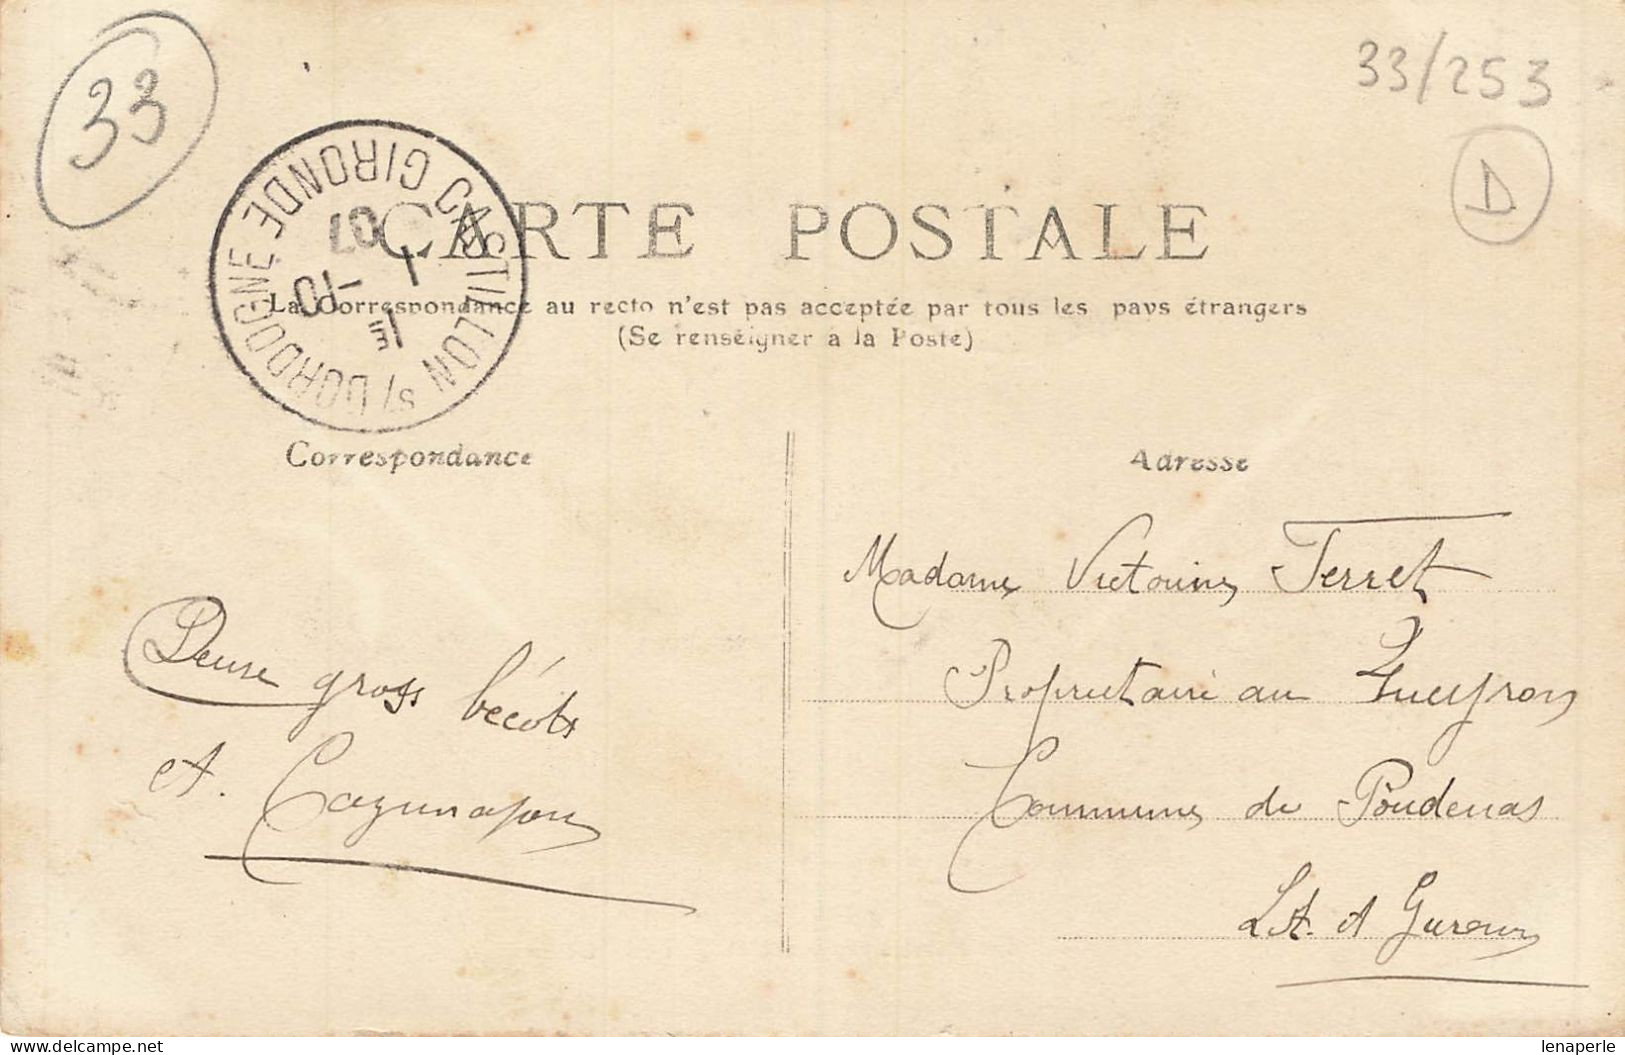 33
33/253
D
CASTILLON S/ DORDOGNE GIRONDE
1E
1 -10
07
CARTE POSTALE
La Correspondance au recto n'est pas acceptée par tous les pays étrangers
(Se renseigner à la Poste)
Correspondance
Adresse
Madame Victorine Terret
Propriétaire au Gueyron
Commune de Poudenas
Lt. et Garonne
Deux gros bécots
A.
delcampe.net
lenaperle